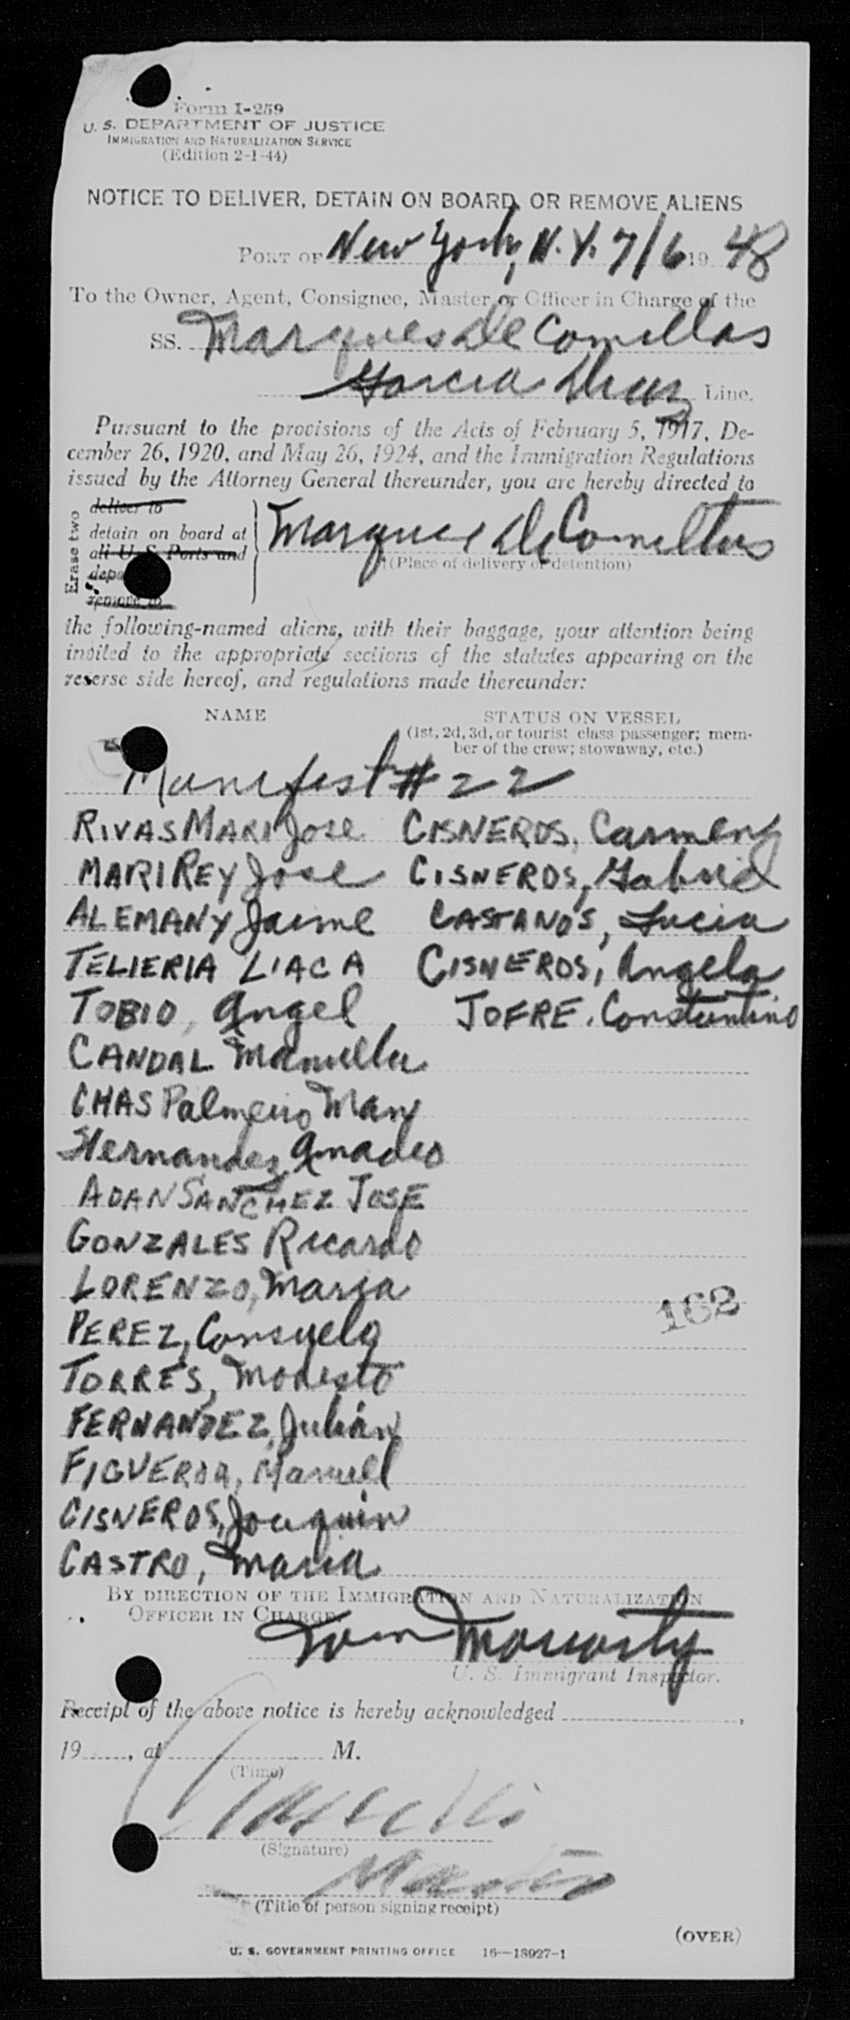 Form I-259
U. S. DEPARTMENT OF JUSTICE
IMMIGRATION AND NATURALIZATION SERVICE
(Edition 2-1-44)
NOTICE TO DELIVER, DETAIN ON BOARD, OR REMOVE ALIENS
PORT OF New York, N.Y. 7/6 19 48
To the Owner, Agent, Consignee, Master or Officer in Charge of the
SS. Marques De Comillas
Garcia Diaz Line.
Pursuant to the provisions of the Acts of February 5, 1917, De-
cember 26, 1920, and May 26, 1924, and the Immigration Regulations
issued by the Attorney General thereunder, you are hereby directed to
Erase two
deliver to
detain on board at
all U S Ports and
remove to
Marques De Comillas
(Place of delivery or detention)
the following-named aliens, with their baggage, your attention being
invited to the appropriate sections of the statutes appearing on the
reverse side hereof, and regulations made thereunder:
NAME STATUS ON VESSEL
(1st, 2d, 3d, or tourist class passenger; mem-
ber of the crew; stowaway, etc.)
Manifest # 22
RIVAS MARI Jose CISNEROS, Carmen
MARI REY Jose CISNEROS, Gabriel
ALEMANY Jaime CASTANOS, Lucia
TELIERIA LIACA CISNEROS, Angela
TOBIO, Angel JOFRE, Constantino
CANDAL Manuela
CHAS Palmeiro Man
Hernandez Amadeo
ADAN SANCHEZ JOSE
GONZALES Ricardo
LORENZO, Maria
162
PEREZ, Consuelo
TORRES, Modesto
FERNANDEZ, Julian
FIGUEROA, Manuel
CISNEROS, Joaquin
CASTRO, Maria
BY DIRECTION OF THE IMMIGRATION AND NATURALIZATION
OFFICER IN CHARGE
Tom Moriarty
U. S. Immigrant Inspector.
Receipt of the above notice is hereby acknowledged
19 , at M.
(Time)
(Signature)
Master
(Title of person signing receipt)
(OVER)
U. S. GOVERNMENT PRINTING OFFICE 16—13927-1